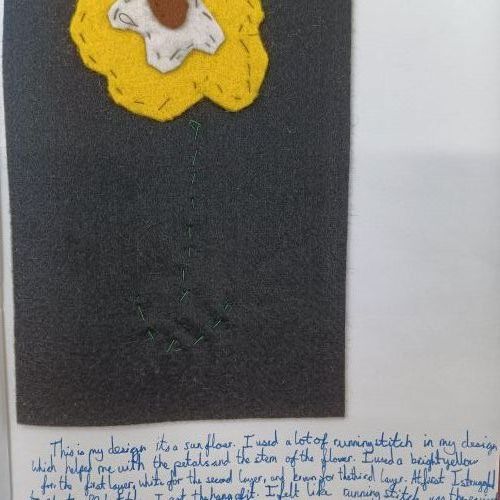 This is my design its a sunfloar. I used a lot of runningstitch in my design
which helped me with the petals and the stem of the flower. I used a bright yellow
for the first layer, white for the second layer, and brown for the third layer. At first I struggled
I got the hang of it. I felt like running stitch was